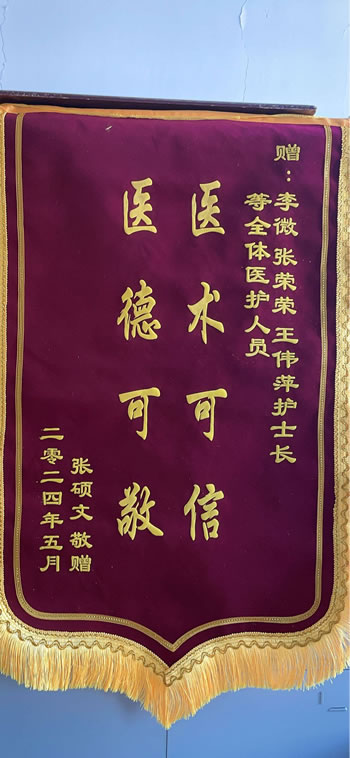 赠：李微张荣荣王伟萍护士长
等全体医护人员
医术可信
医德可敬
张硕文敬赠
二零二四年五月